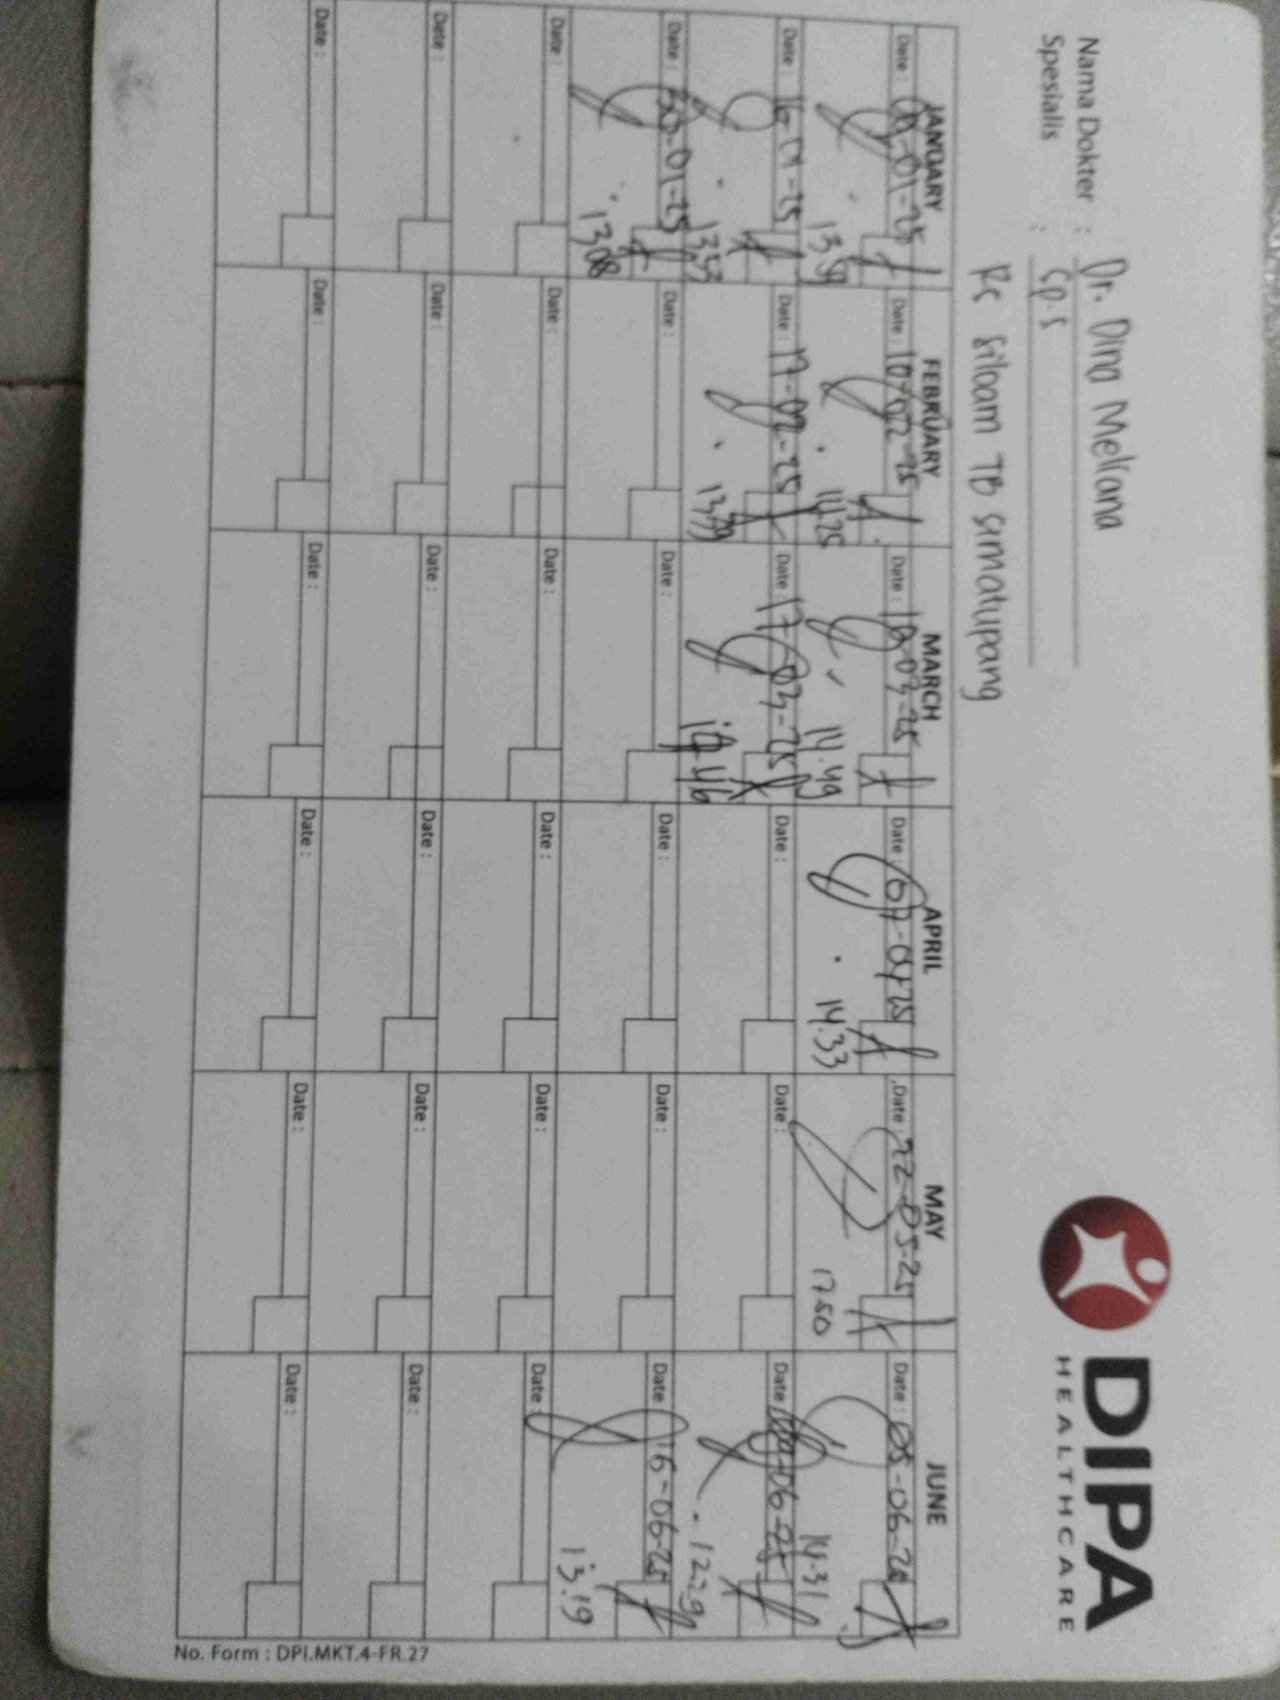 Nama Dokter : Dr. Dina Melrana
Spesialis : Sp.S
RS Siloam TB Simatupang
DIPA
HEALTHCARE
JANUARY FEBRUARY MARCH APRIL MAY JUNE
Date : 09-01-25 Date : 10-02-25 Date : 10-03-25 Date : 07-04-25 Date : 22-05-25 Date : 05-06-25
13.59 14.25 14.49 14.33 17.50 14.31
Date : 16-01-25 Date : 17-02-25 Date : 17-03-25 Date : Date : Date : -06-25
13.53 13.39 .46 12.29
Date : 30-01-25 Date : Date : Date : Date : Date : 16-06-25
13.08 13.19
Date : Date : Date : Date : Date : Date :
Date : Date : Date : Date : Date : Date :
Date : Date : Date : Date : Date : Date :
No. Form : DPI.MKT.4-FR.27